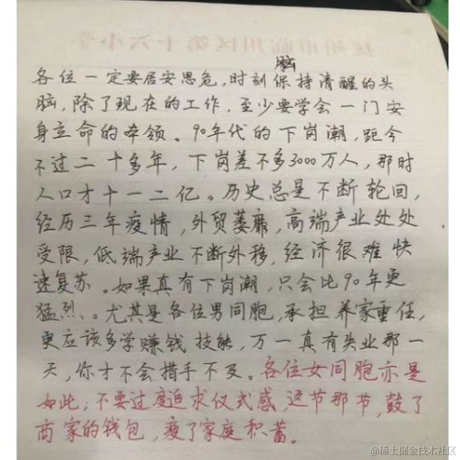 抚州市临川区第十六小学
脑
各位一定要居安思危,时刻保持清醒的头
脑,除了现在的工作,至少要学会一门安
身立命的本领。90年代的下岗潮,距今
不过二十多年,下岗差不多3000万人,那时
人口才十一二亿。历史总是不断轮回,
经历三年疫情,外贸萎靡,高端产业处处
受限,低端产业不断外移,经济很难快
速复苏、。如果真有下岗潮,只会比90年更
猛烈、。尤其是各位男同胞,承担养家重任,
更应该多学赚钱技能,万一真有失业那一
天,你才不会措手不及。各位女同胞亦是
如此,不要过度追求仪式感,这节那节,鼓了
商家的钱包,瘦了家庭积蓄。
@稀土掘金技术社区